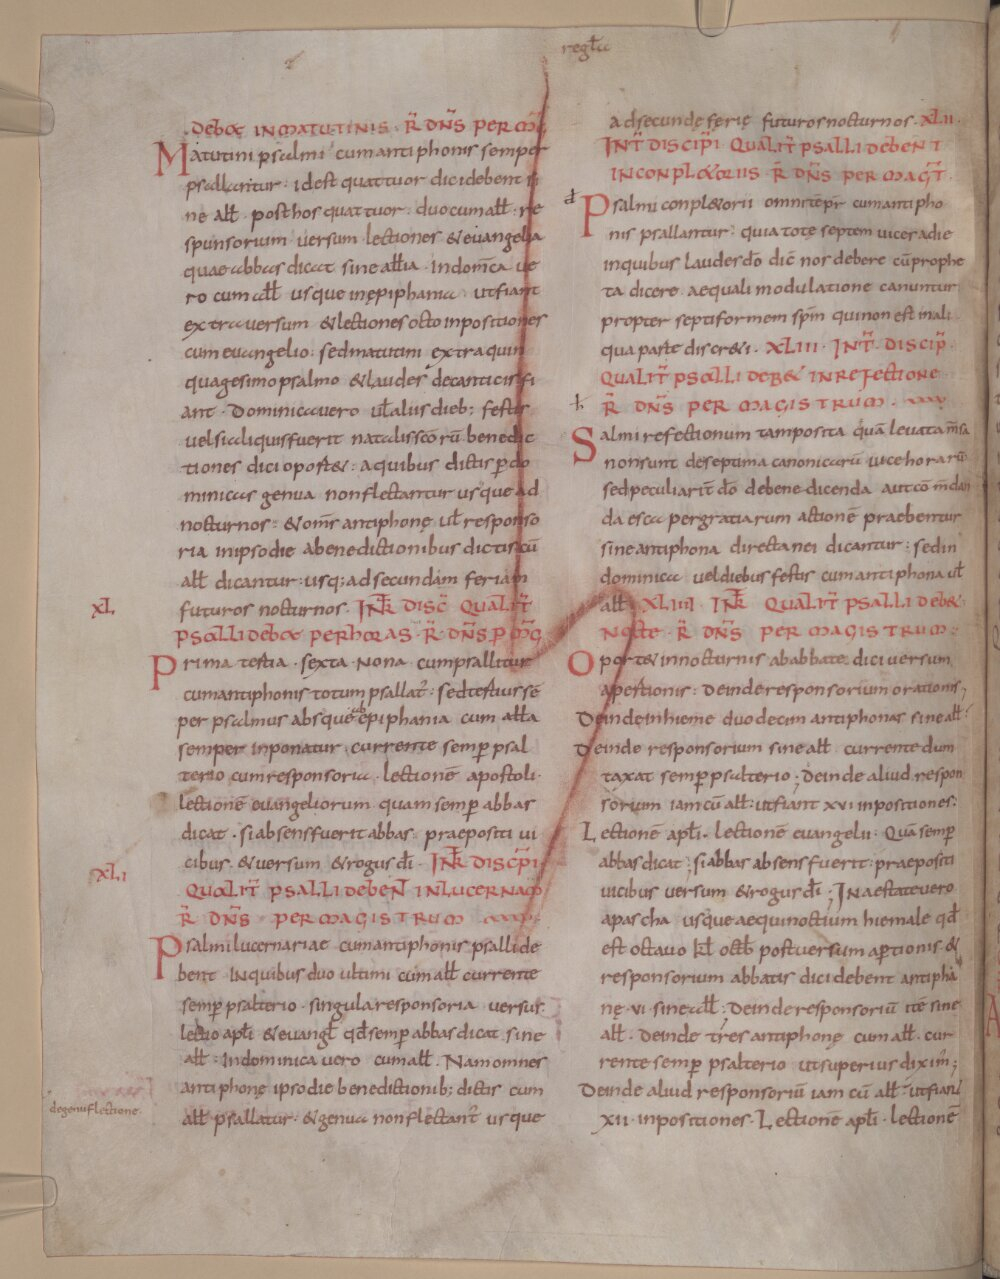 regła
debet IN MATUTINIS · R̃ DN̄S PER MAG̃
Matutini psalmi cum antiphonis semper
psallantur · id est quattuor dici debent si
ne all̃ · post hos quattuor · duo cum all̃ · re
spunsorium · versum · lectiones & euangelia
quae abbas dicat sine all̃ia · In domĩca ue
ro cum all̃ usque in ępiphania · ut fiant
extra uersum & lectiones octo inpositiones
cum euangelio · sed matutini extra quin
quagesimo psalmo & laudes de canticis fi
ant · Dominica uero ut̃ aliis dieb; festis
uel si aliquis fuerit natalis sc̄orū benedic
tiones dici oport& · a quibus dictis p̱ do
minicas genua non flectantur usque ad
nocturnos · & om̄s antiphonę ut̃ responso
ria in ipso die a benedictionibus dictis cū
all̃ dicantur · usq; ad secundam feriam
XL futuros nocturnos · INT̃ DISC̃ QUALIT̃
PSALLI debet PER HORAS · R̃ DN̄S P̱ MG̃
Prima tertia · sexta · nona · cum psallitur
cum antiphonis totum psallat̃ · sed tertius sē
per psalmus absque ab ępiphania cum all̃a
semper inponatur · currente semp̱ psal
terio cum responsoria · lectionē apostoli ·
lectionē euangeliorum quam semp̱ abbas
dicat · si absens fuerit abbas · praepositi ui
cibus · & uersum & rogus d̄i · INT̃ DISCIP̃I
XLI QUALIT̃ PSALLI DEBEÑ IN LUCERNAR̃
R̃ DN̄S · PER MAGISTRUM
Psalmi lucernariae cum antiphonis psalli de
bent In quibus duo ultimi cum all̃ currente
semp̱ psalterio · singula responsoria uersus
lectio apl̄i & euangl̃ qd̃ semp̱ abbas dicat sine
all̃ · In dominica uero cum all̃ · Nam omnes
antiphonę ipso die benedictionib; dictis cum
de genuflectione · all̃ psallatur · & genua non flectant̃ usque
ad secundę ferię futuros nocturnos · XLII ·
INT̃ DISCIP̃I QUALIT̃ PSALLI DEBENT
IN CONPLETORIIS R̃ DN̄S PER MAGT̃
Psalmi conpl&orii omni tēpr̃ cum antipho
nis psallantur · quia totę septem uicer a die
in quibus laudes d̄o dic̃ nos debere cū prophe
ta dicere aequali modulatione canuntur
propter septiformem sp̄m qui non est in ali
qua parte discr&i · XLIII · INT̃ DISCIP̃ ·
QUALIT̃ PSALLI DEB& IN REFECTIONE
R̃ DN̄S PER MAGISTRUM
Salmi refectionum tam posita quā leuata m̄sa
non sunt de septima canonicarū uice horarū
sed peculiarit̃ d̄o debene dicenda aut com̄dan
da esca per gratiarum actionē praebentur
sine antiphona directanei dicantur · sed in
dominica uel diebus festis cum antiphona ut̃
all̃ XLIIII · INT̃ QUALIT̃ PSALLI DEB&
NOCTE · R̃ DN̄S PER MAGISTRUM ·
Oport& in nocturnis ab abbate dici uersum
apertionis · Deinde responsorium orationis;
Deinde in hieme duodecim antiphonas sine all̃
Deinde responsorium sine all̃ currente dum
taxat semp̱ psalterio; Deinde aliud respon
sorium iam cū all̃ · ut fiant XVI inpositiones ·
Lectionē apl̄i · lectionē euangelii · Quā semp̱
abbas dicat; si abbas absens fuerit · praepositi
uicibus uersum & rogus d̄i; In aestate uero
a pascha usque aequinoctium hiemale qd̃
est octauo kl̃ octb̃ post uersum ap̱tionis &
responsorium abbatis dici debent antipha
nę VI sine all̃; Deinde responsoriū itē sine
all̃ · Deinde tres antiphonę cum all̃ cur
rente semp̱ psalterio ut superius diximꝰ;
Deinde aliud responsoriū iam cū all̃ · ut fiant
XII · inpositiones · Lectionē apl̄i · lectionē